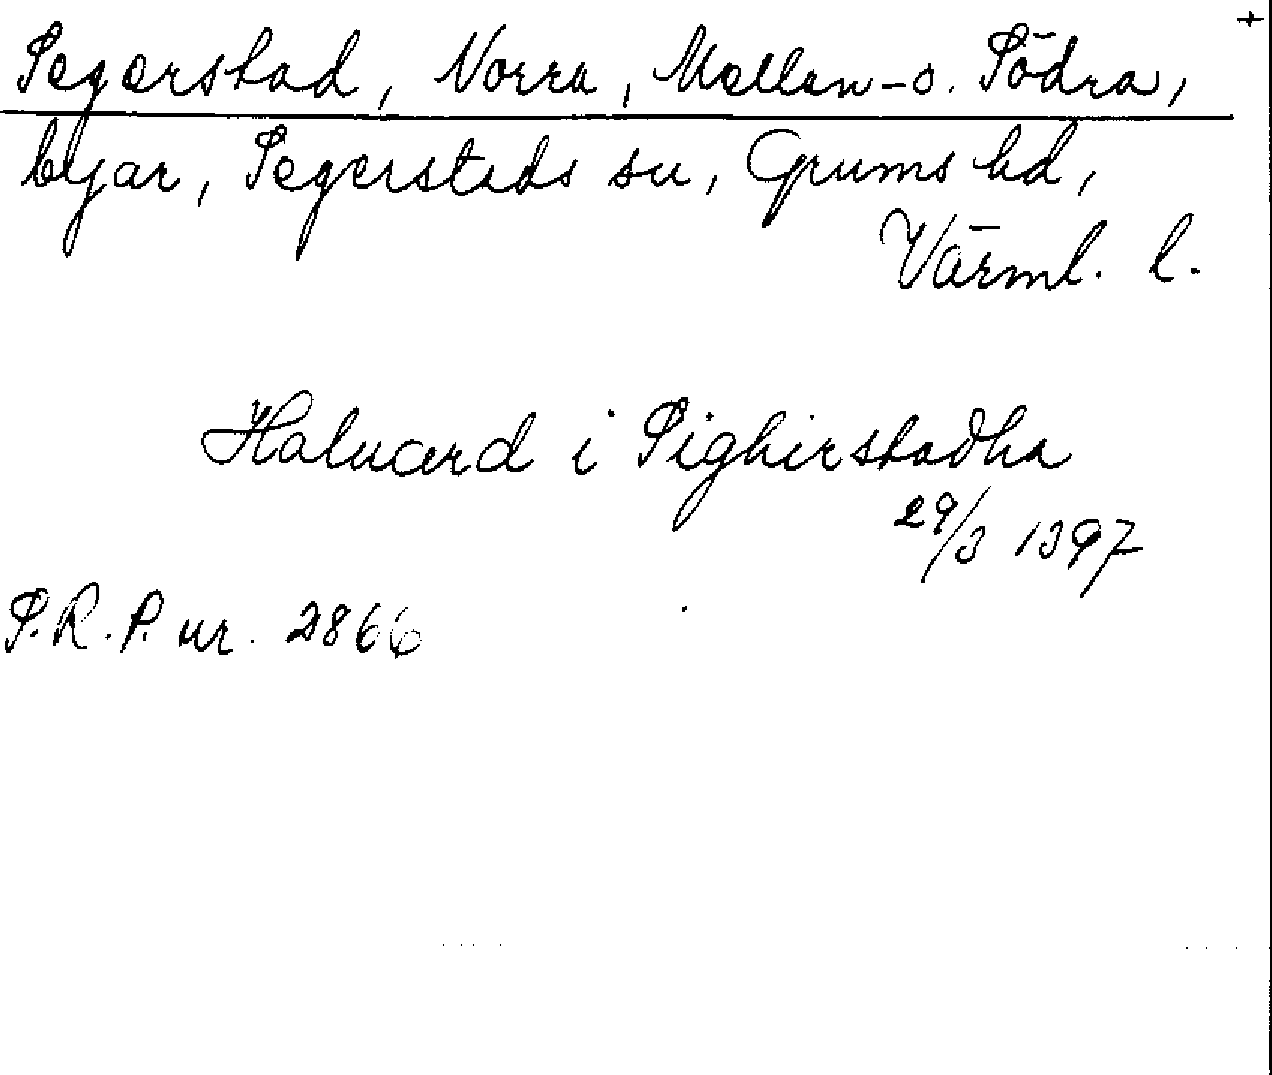 +
Segerstad, Norra, Mellan- o. Södra,
byar, Segerstads sn, Grums hd,
Värml. l.
Haluard i Sighirstadha
29/3 1397
S.R.P. nr. 2866